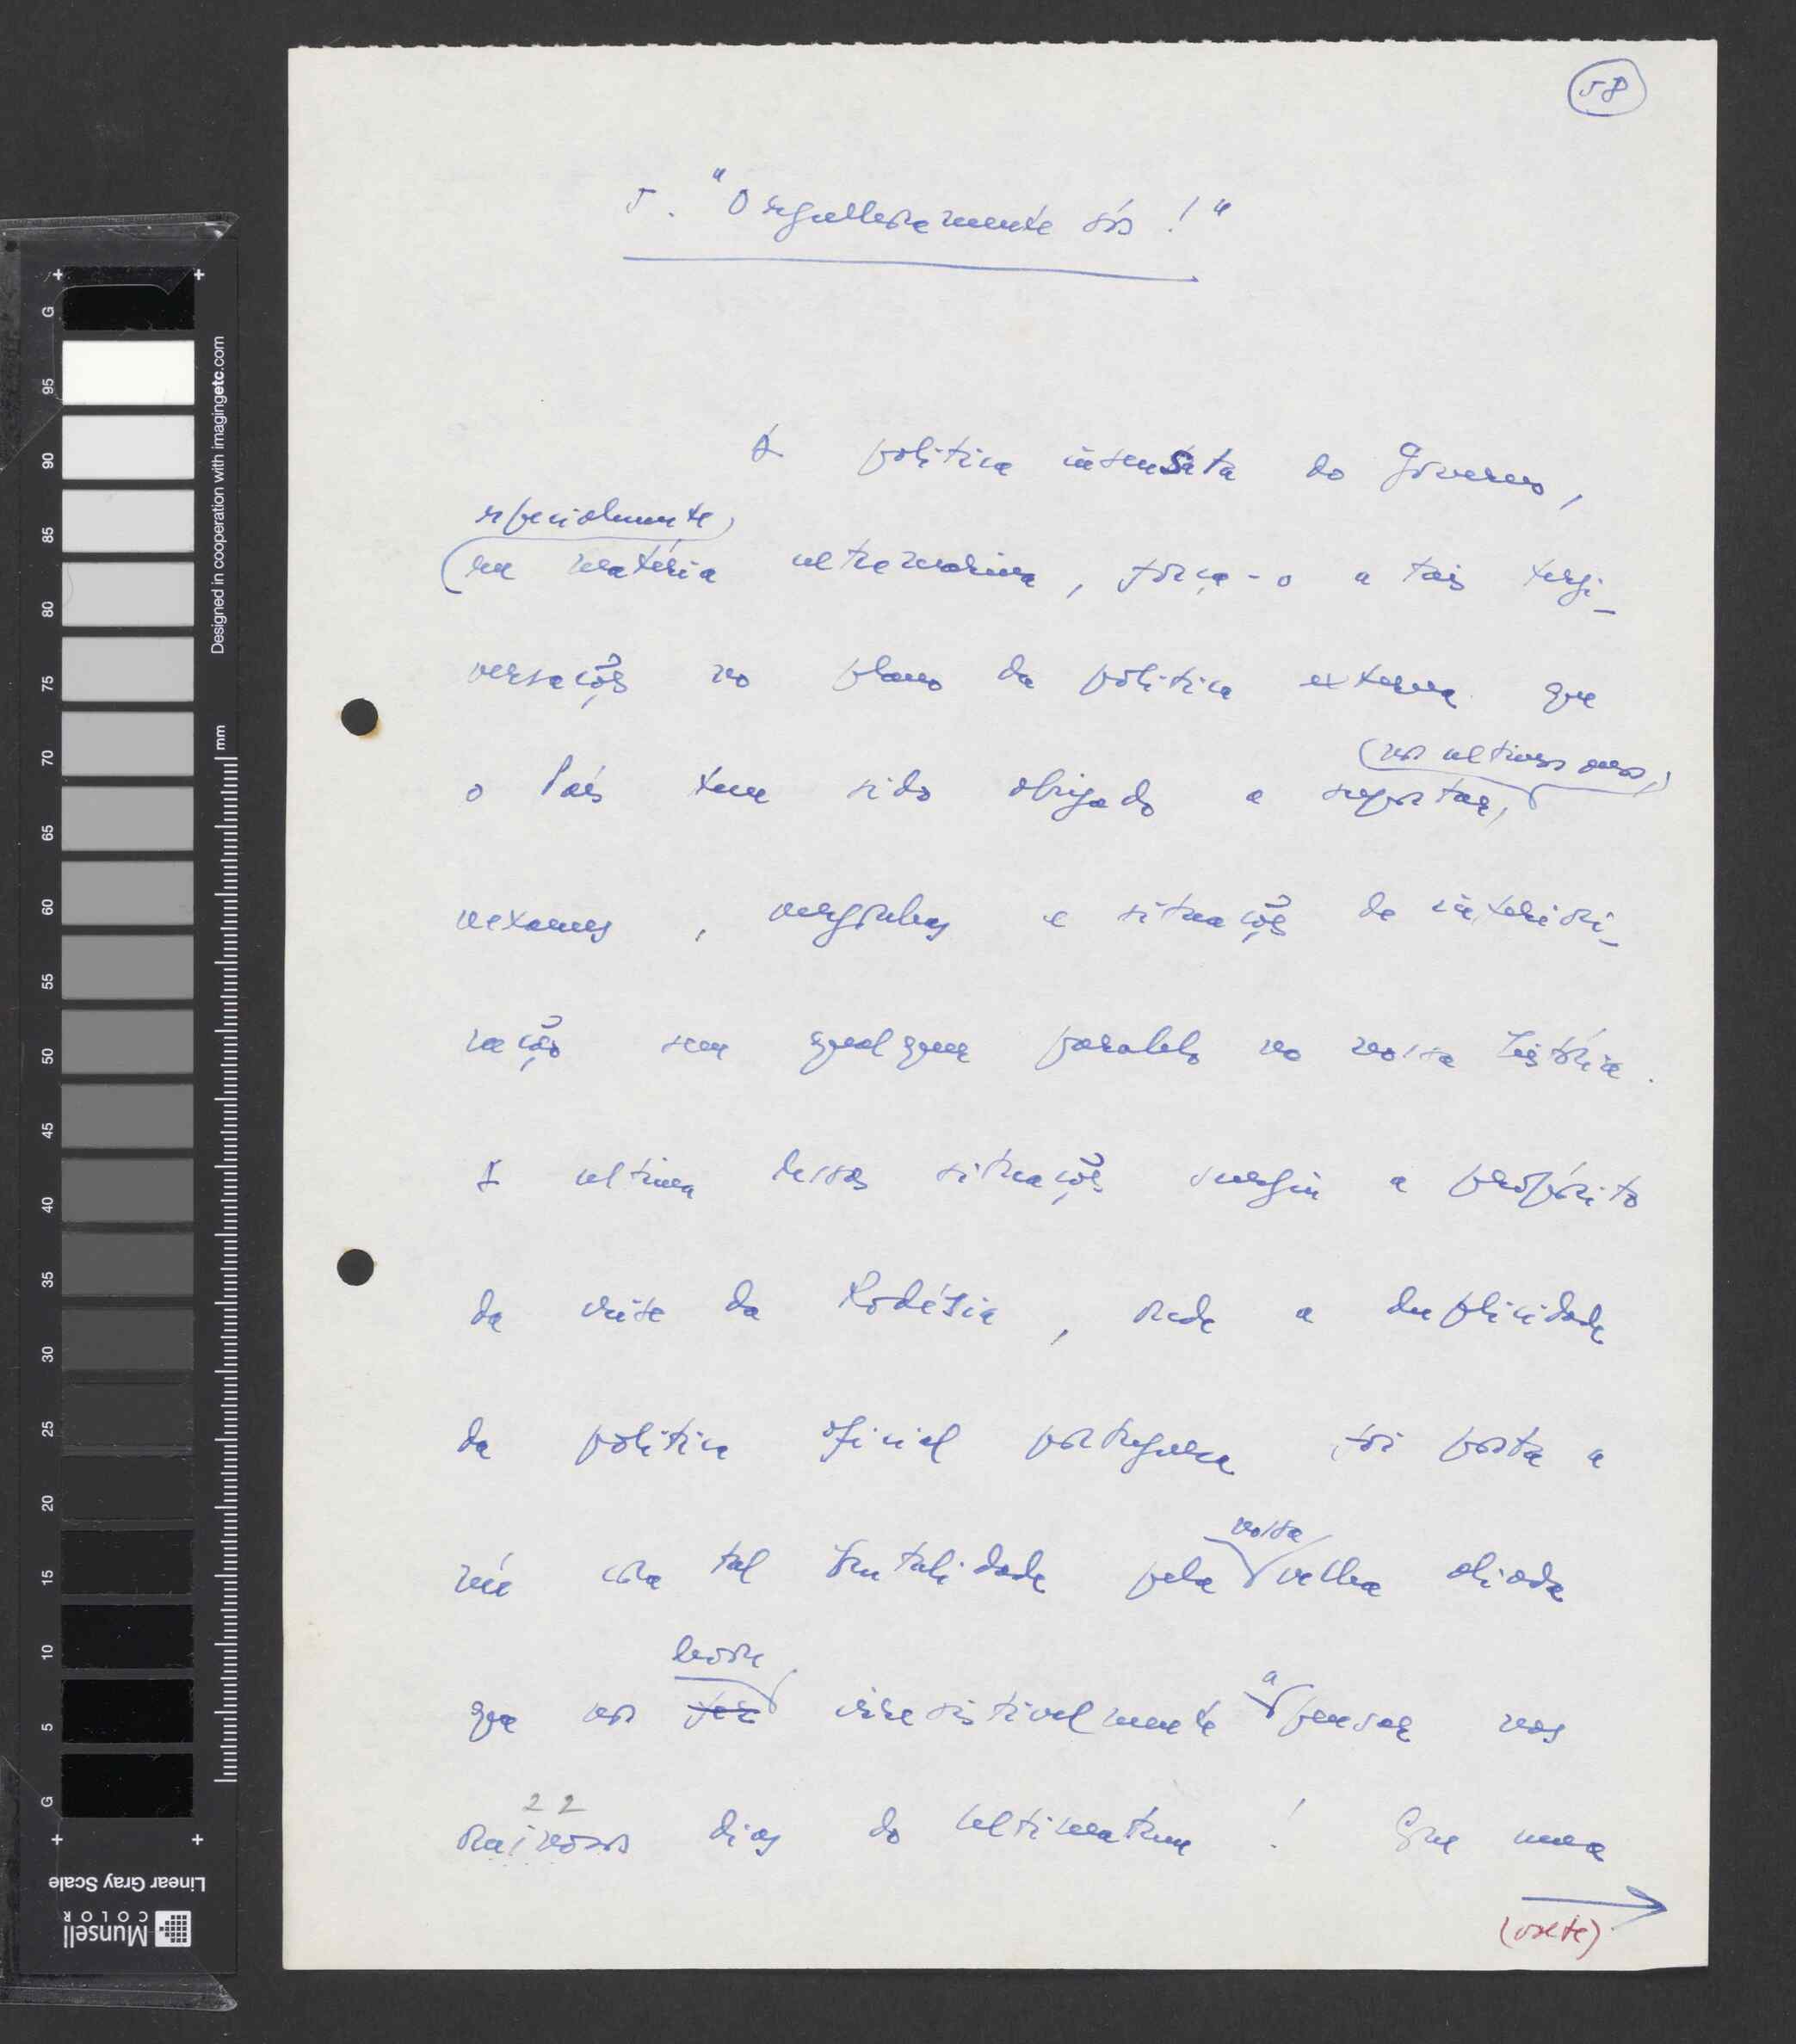 58
5. "Orgulhosamente sós!"
A política insensata do Governo,
especialmente,
na matéria ultramarina, força-o a tais tergi-
versações no plano da política externa que
(nos ultimos anos,)
o País tem sido obrigado a suportar,
vexames, vergonhas e situações de inferiori-
zação sem qualquer paralelo na nossa história.
A ultima dessas situações surgiu a propósito
da crise da Rodésia, onde a duplicidade
da política oficial portuguesa foi posta a
nú com tal brutalidade pela nossa velha aliada
que nos leva irresistivelmente a pensar nos
22
dias do Ultimatum! Que uma
(volte)
Designed in cooperation with imagingetc.com
mm
G 95 90 85 80 75 70 65 60 55 50 45 40 35 30 25 20 15 10 5 G
Linear Gray Scale
Munsell
COLOR